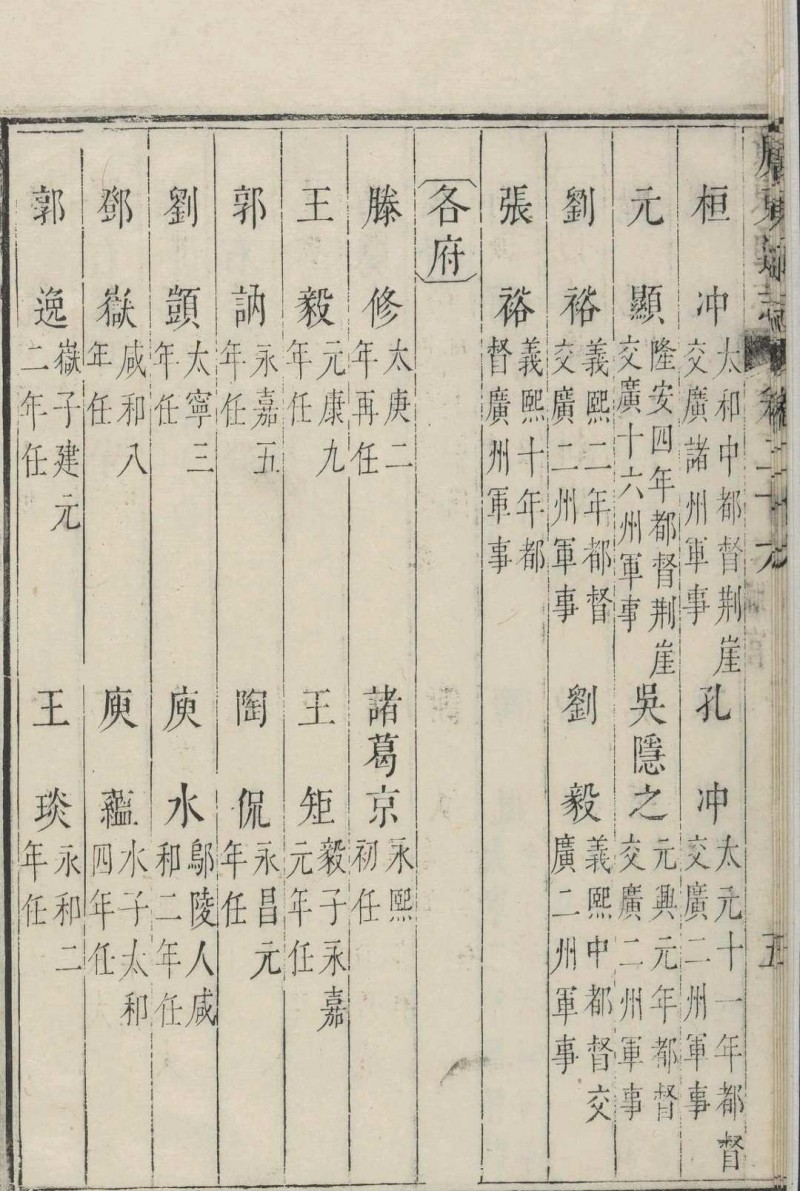 桓冲 太和中都督荆崖交廣諸州軍事 孔冲 太元十一年都督交廣二州軍事
元顯 隆安四年都督荆崖交廣十六州軍事 吳隱之 元興元年都督交廣二州軍事
劉裕 義熙二年都督交廣二州軍事 劉毅 義熙中都督交廣二州軍事
張裕 義熙十年都督廣州軍事
各府
滕修 太庚二年再任 諸葛京 永熙初任
王毅 元康九年任 王矩 毅子永嘉元年任
郭訥 永嘉五年任 陶侃 永昌元年任
劉顗 太寧三年任 庾水 鄔陵人咸和二年任
鄧嶽 咸和八年任 庾蘊 水子太和四年任
郭逸 嶽子建元二年任 王琰 永和二年任